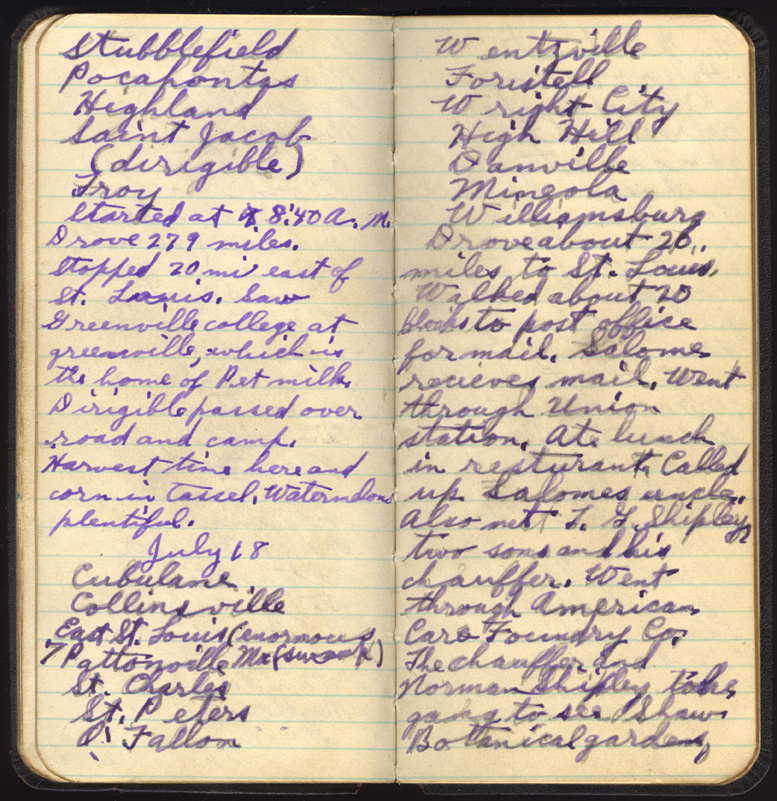 Stubblefield
Pocahontas
Highland
Saint Jacob
(dirigible)
Troy
Started at 8:40 A. M.
Drove 279 miles.
Stopped 20 mi east of
St. Louis. Saw
Greenville college at
greenville, which is
the home of Pet milk.
Dirigible passed over
road and camp.
Harvest time here and
corn in tassel. Watermelons
plentiful.
July 18
Collinsville
East St. Louis (enormous
Pattonville Mo
St. Charles
St. Peters
O' Fallon
Wentzville
Foristell
Wright City
High Hill
Danville
Mineola
Williamsburg
Drove about 20
miles to St. Louis.
Walked about 20
blocks to post office
for mail. Salome
recieves mail. Went
through Union
station. Ate lunch
in resturant. Called
up Salomes uncle.
Also met Shipley,
two sons and his
chauffer. Went
through American
Car & Foundry Co.
The chauffer and
Norman Shipley take
gang to see Shaws
Botanical gardens,